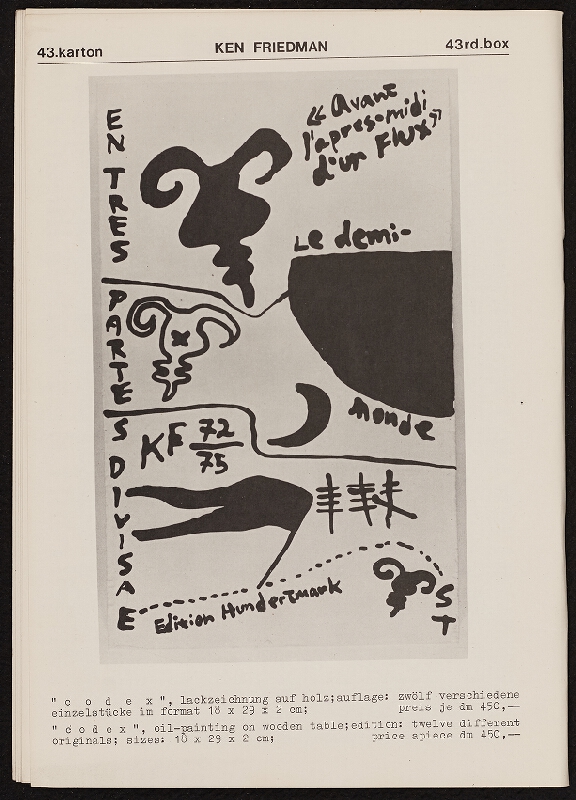 43.karton
KEN FRIEDMAN
43rd.box
EN TRES PARTES DIVISAE
« Avant
l'apres-midi
d'un Flux»
Le demi-
Monde
KF 72
75
Edition Hundertmark
ST
"c o d e x", lackzeichnung auf holz;auflage: zwölf verschiedene
einzelstücke im format 18 x 29 x 2 cm; preis je dm 450,—
"c o d e x", oil-painting on wooden table;edition: twelve different
originals; sizes: 18 x 29 x 2 cm; price apiece dm 450,—